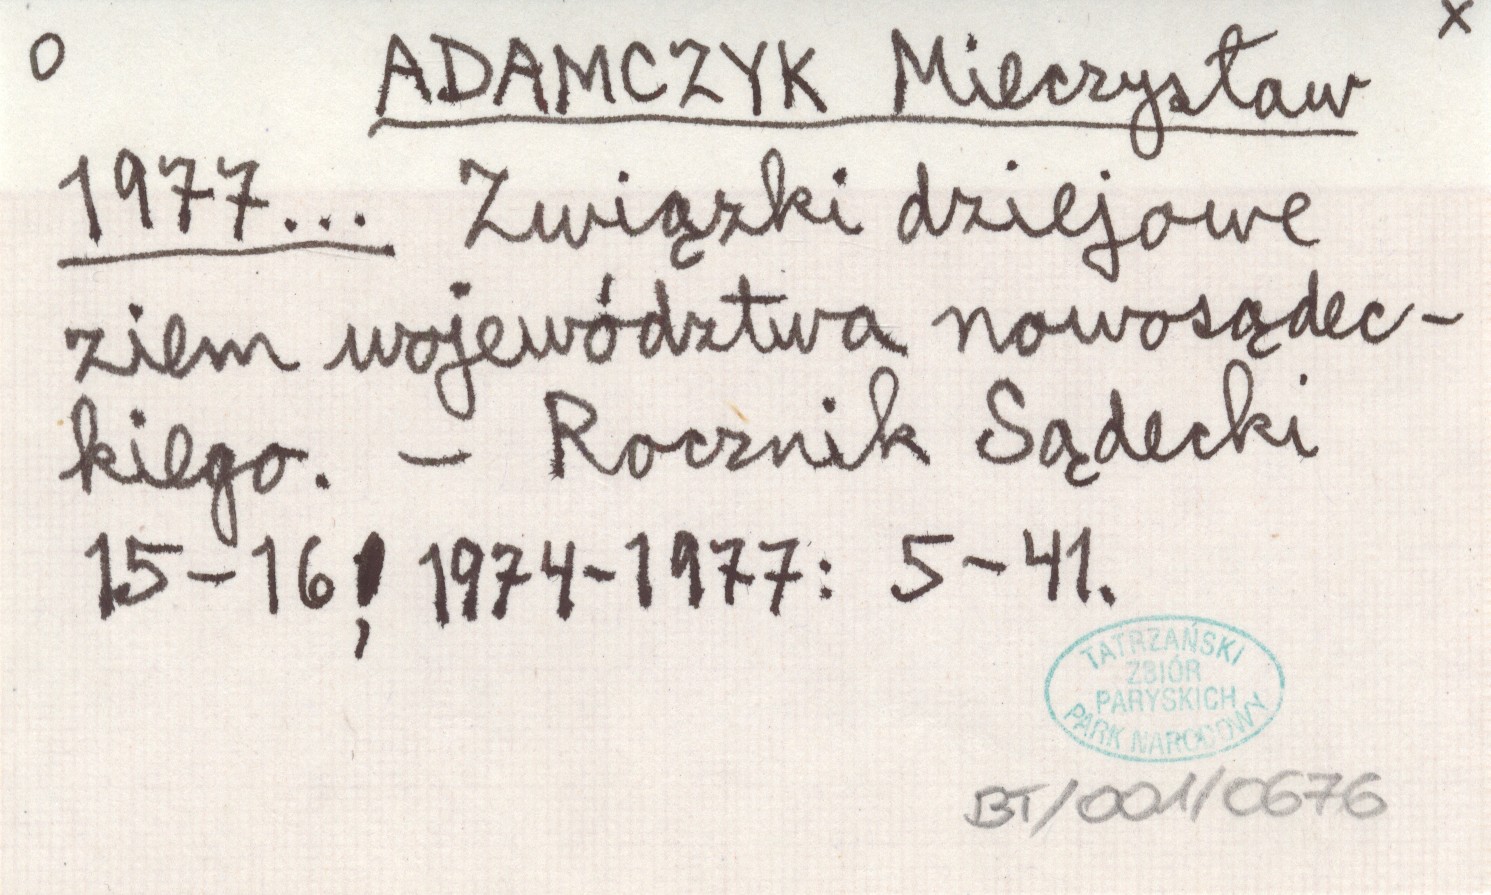 O ADAMCZYK Mieczysław x
1977... Związki dziejowe
ziem województwa nowosądec-
kiego. — Rocznik Sądecki
15-16, 1974-1977: 5-41.
TATRZAŃSKI
ZBIÓR
PARYSKICH
PARK NARODOWY
BT/001/0676